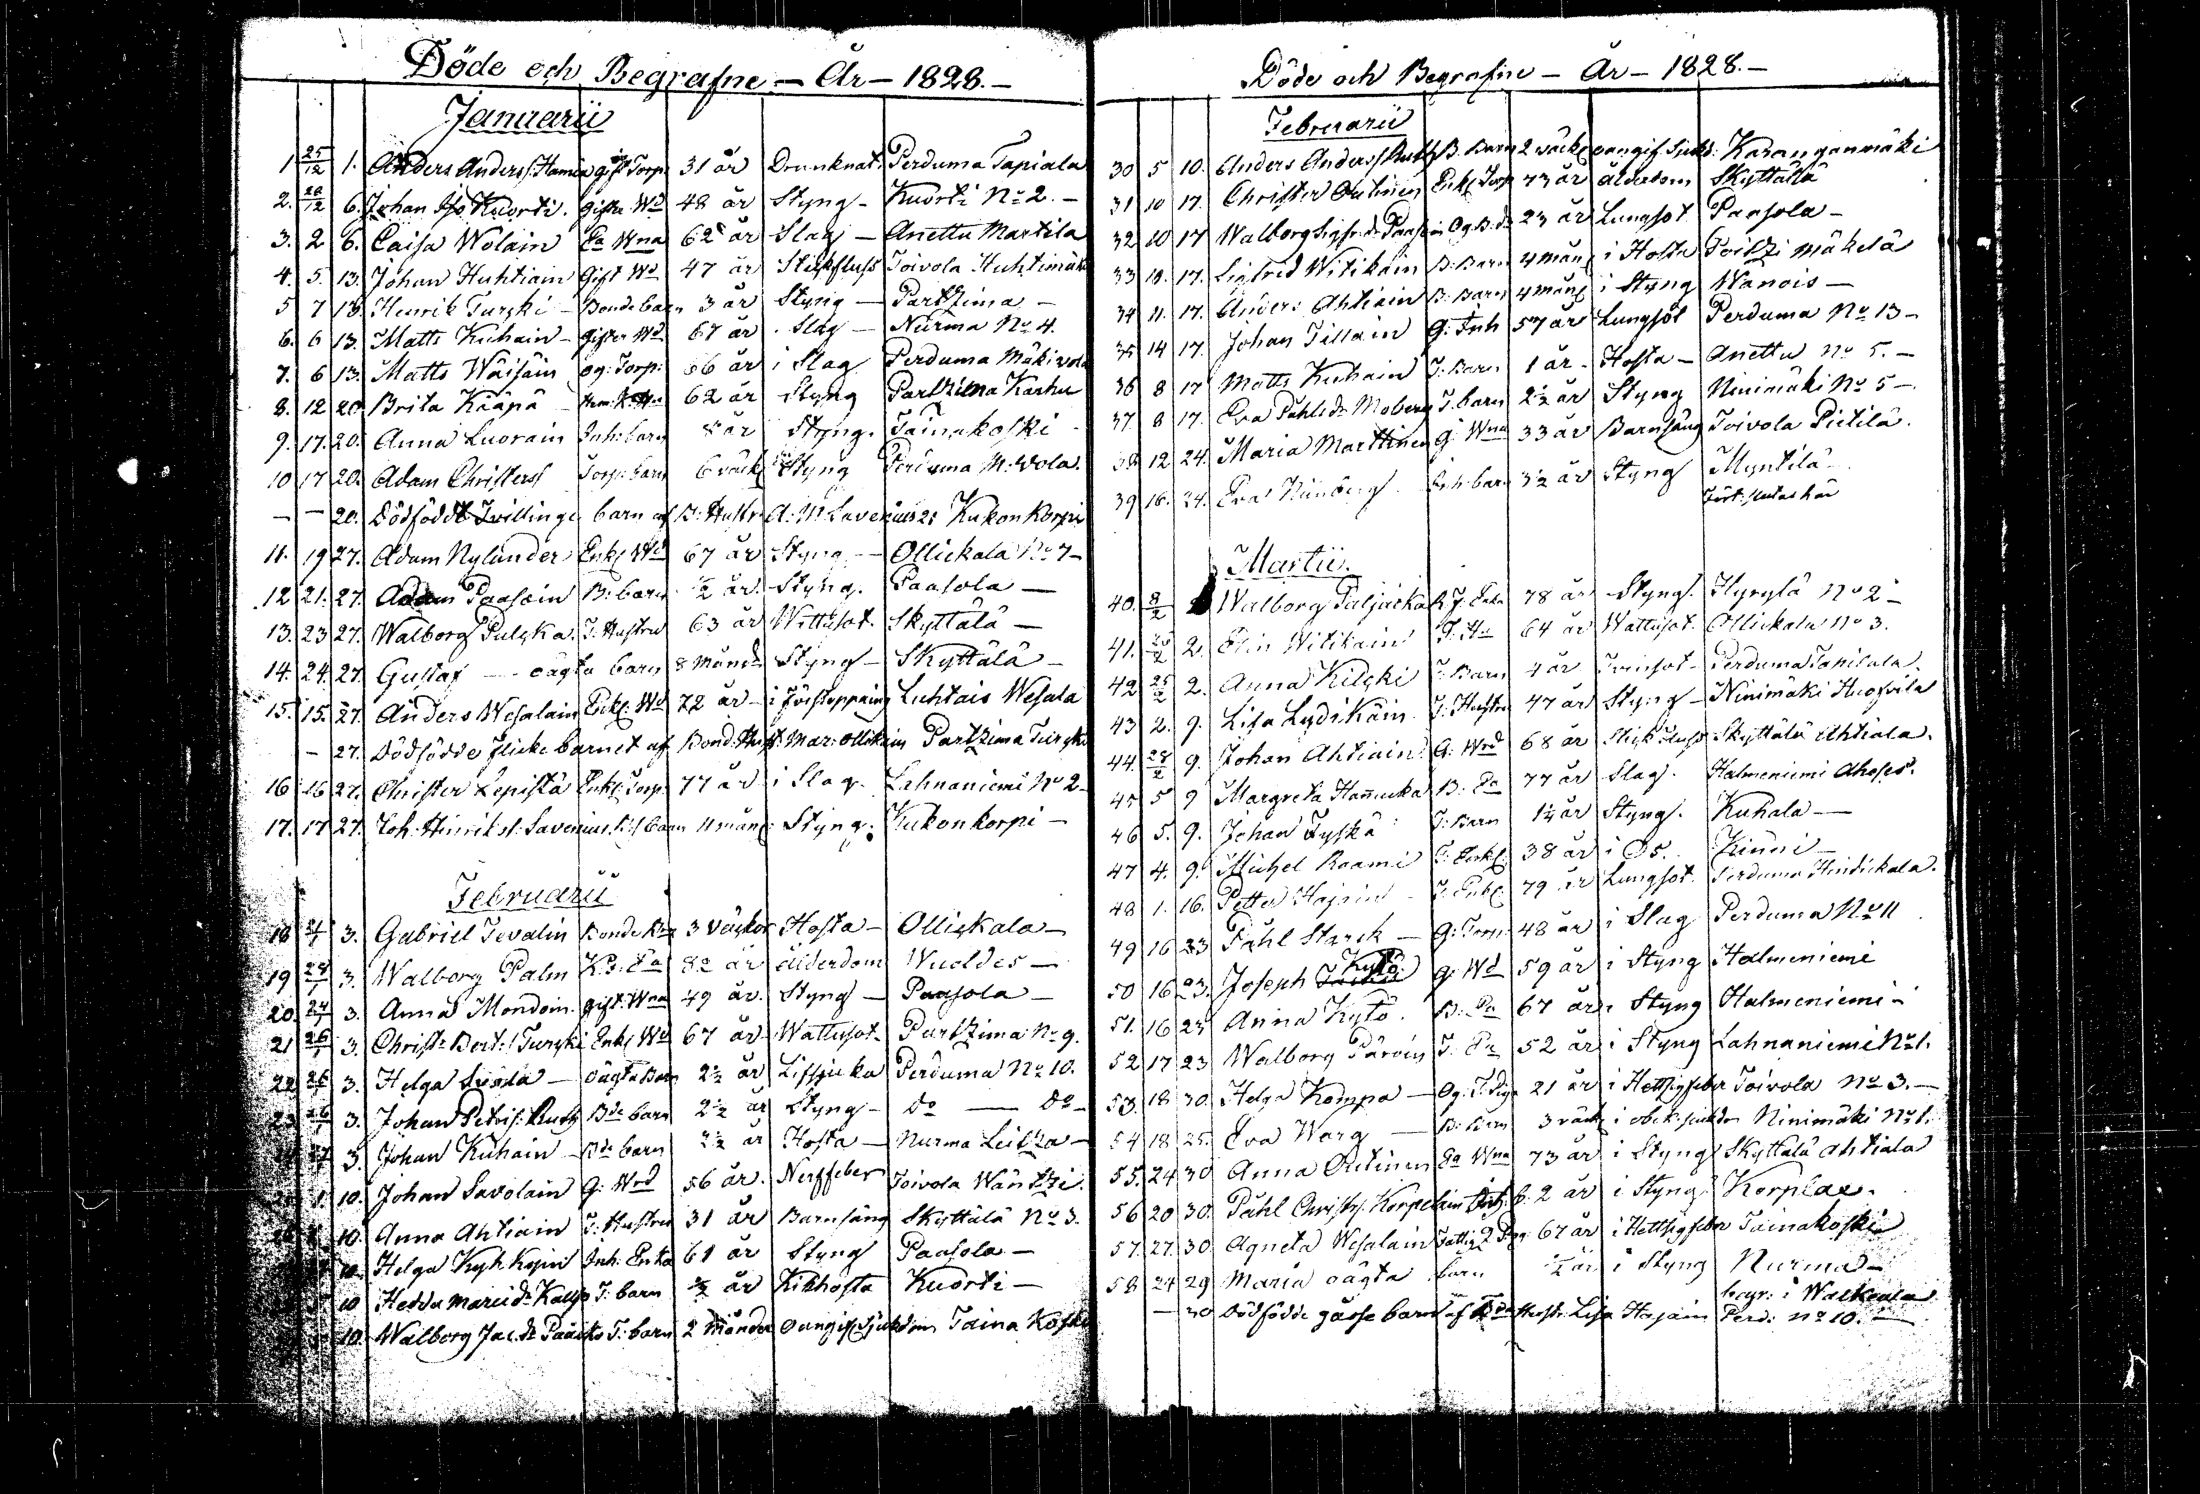 Döde och Begrafne — År — 1828.—
Januarii
1 25/12 1. Anders Anderss. gift Torp. 31 år Drunknat. Perduma Tapiala
2. 6. Johan Kuorti. gifte Wd 48 år Styng — Kuorti No 2. —
3. 2 6. Caisa Wolain Ea Wna 62 år Slag — Anettu Martila
4. 5. 13. Johan Huhtiain Gift Wd 47 år Stickfluss Toivola Huhtimäki
5 7 13. Henrik Turski — Bonde barn 3 år Styng — Partzima —
6. 6 13. Matts Kuhain — gifter Wd 67 år Slag — Nurma No 4.
7. 6 13. Matts Wäisäin og: Torp: 56 år i Slag Perduma Mäkivola
8. 12 20. Brita Kääpä 62 år Styng Partzima Karhu
9. 17. 20. Anna Luorain Inh: barn 8 år Styng. Tainakoski
10 17 20. Adam Christerss Torp: barn 6 väck Styng Perduma M. wola.
— — 20. Dödfödde Tvillinge barn af B: Hustr. A: M. Kukonkorpi
11. 19 27. Adam Nylander Enkl Wd 67 år Styng — Ollickala No 7 —
12 21. 27. Adam Paasoin B: barn ½ år Styng. Paasola —
13. 23 27. Walborg Pulska. T: Hustru 63 år Wattusot. Skyttälä —
14. 24. 27. Gustaf — oägta barn 8 Månd Styng — Skyttälä —
15. 15. 27. Anders Wesalain Enkl: Wd 72 år — i förstoppning Luhtais Wesala
— 27. Dödfödde flicke barnet af Bond: Hust. Mar: Ollikain Partzima Turski
16 16 27. Christer Lepistä Enkl: Torp: 77 år i Slag. Lahnaniemi No 2 —
17. 17 27. Joh: Hinrikss. Savenius barn 11 mån: Styng. Kukonkorpi —
Februarii
18 3. Gabriel Tevalin Bonde Bn 3 väckor Hosta — Ollickala —
19 28/1 3. Walborg Palm år ålderdom Wuoldes —
20. 24/1 3. Anna Mondoin. gift: Wna 49 år. Styng — Paasola —
21 26/1 3. Christr Bert: Turski Enkl Wd 67 år Wattusot. Partzima No 9.
22 26/1 3. Helga — oägta Barn 2½ år Perduma No 10.
23 26/1 3. Johan Petris: Bde barn 2½ år Styng — Do — Do —
3. Johan Kuhain — Bde barn 2½ år Hosta — Nurma Leitza —
1. 10. Johan Savolain G: Wrd 56 år. Nerffeber Toivola Wäntzi.
10. Anna Ahtiain T: Hustru 31 år Barnsäng Skyttälä No 3.
10. Helga Inh: Enka 61 år Styng Paasola —
10 Hedda Marieidr T: barn år Kikhosta Kuorti —
10. Walborg Jac. dr T: barn 2 Månder oangif. sjukdom Taina Koski
Döde och Begrafne — År — 1828.—
Februarii
30 5 10. Anders Anderss. B. Barn 2 wäck oangif. Sjukd: Karanganmäki
31 10 17. Christer Outinen Enkl Torp 73 år ålderdom Skyttälä
32 10 17 Walborg Sigfr: dr 23 år Lungsot. Paasola —
33 10. 17. Sigfrid Witikain B: Barn 4 mån i Hosta Voitzi mäkelä
34 11. 17. Anders Ahtiain B: Barn 4 mån i Styng Wanois —
35 14 17. Johan Tillain G: Inh 57 år Lungsot Perduma No 13 —
36 8 17 Matts Kuhain T: Barn 1 år — Hosta — Anettu No 5. —
37 8 17. Eva Påhlsdr Moberg T. barn 2½ år Styng Ninimäki No 5 —
38 12 24. Maria Marttinen g: Wna 33 år Barnsäng Toivola Pietilä.
39 16. 24. Eva Inh: barn 3½ år Styng Myntilä —
Martii.
40. 8/2 Walborg Paljacka 78 år Styng. Hyrylä No 2 —
41. 2. Elin Witikain 64 år Wattusot. Ollickala No 3.
42 25/2 2. Anna Kilski T: Barn 4 år Perduma Tapiala.
43 2. 9. Lisa Lydikäin. T: Hustru 47 år Styng — Ninimäki Huofvila
44. 28/2 9. Johan Ahtiain G: Wrd 68 år Stickfluss Skyttälä Ahtiala.
45 5 9 Margreta Hanucka B: Ea 77 år Slag. Halmeniemi
46 5. 9. Johan Tyskä T: Barn 1¼ år Styng. Kuhala —
47 4. 9. Michel Raami T: Enkl: 38 år i Do. Kinni —
48 1. 16. Petter T. Enkl 79 år Lungsot. Perduma Hindickala.
49 16 23 Påhl Starck — G: Torp: 48 år i Slag Perduma No 11
50 16 23. Joseph Kytö g: Wd 59 år i Styng Halmeniemi
51. 16 23 Anna Kytö. B: Ea 67 år i Styng Halmeniemi —
52 17 23 Walborg Pärvin T: Ea 52 år i Styng Lahnaniemi No 1.
53. 18 30 Helga Kompa — Og. T. Pig 21 år i Hettsigfeber Toivola No 3. —
54 18 25. Eva Warg — B: Barn 3 väck i obek. sjukdom Ninimäki No 1.
55. 24 30 Anna Outinen Ea Wna 73 år i Styng Skyttälä Ahtiala
56 20 30. Påhl Christ: Korpelain b. 2 år i Styng Korplax.
57. 27. 30 Agneta Wesalain 67 år i Hettsigfeber Tainakoski
58 24 29 Maria oägta barn ½ år i Styng Nurmaa —
begr: i Walkeala
— 30 Dödfödde gosse barn af Hustr. Lisa Perd: No 10. —